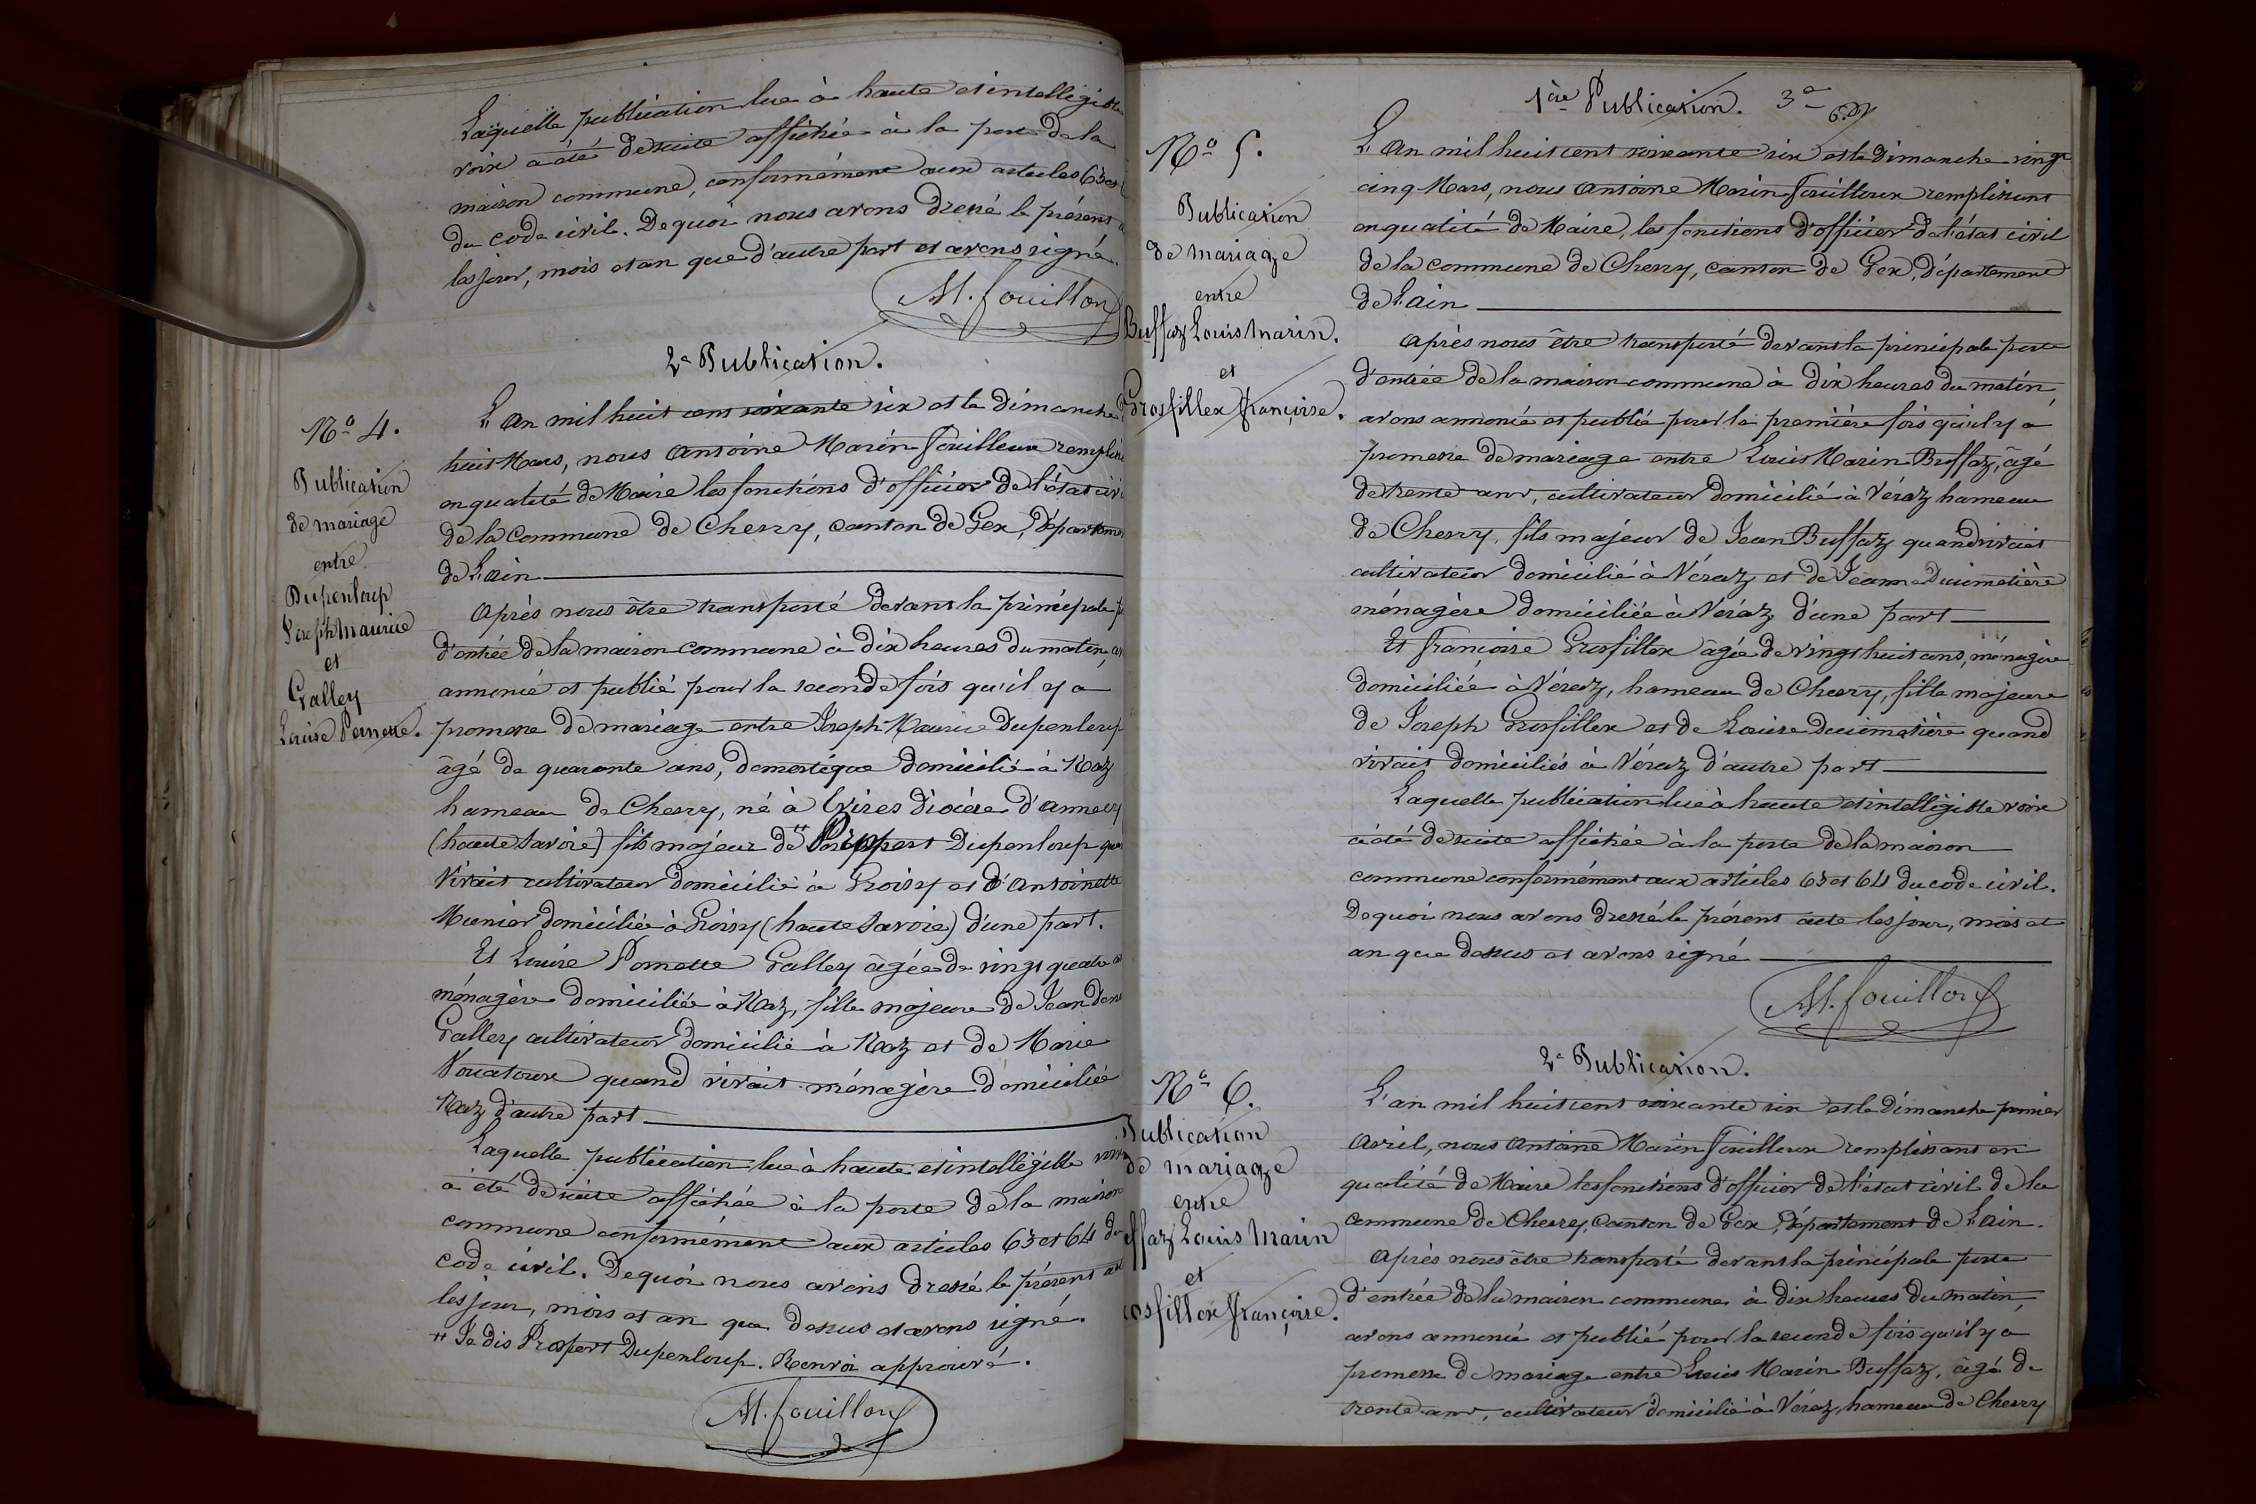 Laquelle publication lue à haute et intelligible
voix a été de suite affichée à la porte de la
maison commune, conformément aux articles 63 et
du code civil. De quoi nous avons dressé le présent
les jour, mois et an que d'autre part et avons signé.
M. fouilloux
2e Publication.
No 4.
Publication
de mariage
entre
Dupenloup
Joseph Maurice
et
Galley
Louise Pernette.
L'an mil huit cent soixante six et le dimanche
huit Mars, nous Antoine Marin Fouilloux
en qualité de Maire les fonctions d'officier de l'état
de la Commune de Chevry, canton de Gex,
de l'Ain
Après nous être transporté devant la principale
d'entrée de la maison commune à dix heures du matin,
annoncé et publié pour la seconde fois qu'il y a
promesse de mariage entre Joseph Maurice Dupenloup
âgé de quarante ans, domestique domicilié à Naz
hameau de Chevry, né à Evires diocèse d'annecy
(haute Savoie) fils majeur de Dupenloup
vivait cultivateur domicilié à Groisy et d'Antoinette
Munier domiciliée à Groisy (haute Savoie) d'une part.
Et Louise Pernette Galley âgée de vingt quatre
ménagère domiciliée à Naz, fille majeure de Jean
Galley cultivateur domicilié à Naz et de Marie
Vouatoux quand vivait ménagère domiciliée
Naz d'autre part
Laquelle publication lue à haute et intelligible voix
a été de suite affichée à la porte de la maison
commune conformément aux articles 63 et 64 du
code civil. De quoi nous avons dressé le présent
les jour, mois et an que dessus et avons signé.
" Je dis Prospert Dupenloup. Renvoi approuvé.
M. fouilloux
1ère Publication. 3e
No 5.
Publication
de mariage
entre
Buffaz Louis Marin.
et
Grosfillex françoise.
L'an mil huit cent soixante six et le dimanche vingt
cinq Mars, nous Antoine Marin Fouilloux remplissant
en qualité de Maire, les fonctions d'officier de l'état civil
de la commune de Chevry, canton de Gex, département
de l'ain
Après nous être transporté devant la principale porte
d'entrée de la maison commune à dix heures du matin,
avons annoncé et publié pour la première fois qu'il y a
promesse de mariage entre Louis Marin Buffaz, âgé
de trente ans, cultivateur domicilié à Véraz hameau
de Chevry, fils majeur de Jean Buffaz quand vivait
cultivateur domicilié à Véraz et de Jeanne Ducimetière
ménagère domiciliée à Véraz d'une part
Et françoise Grosfillex âgée de vingt huit ans, ménagère
domiciliée à Véraz, hameau de Chevry, fille majeure
de Joseph Grosfillex et de Louise Ducimetière quand
vivait domiciliés à Véraz d'autre part
Laquelle publication lue à haute et intelligible voix
a été de suite affichée à la porte de la maison
commune conformément aux articles 63 et 64 du code civil.
De quoi nous avons dressé le présent acte les jour, mois et
an que dessus et avons signé
M. fouilloux
2e Publication.
No 6.
Publication
de mariage
entre
ffaz Louis Marin
et
osfillex françoise.
L'an mil huit cent soixante six et le dimanche premier
Avril, nous Antoine Marin Fouilloux remplissant en
qualité de Maire les fonctions d'officier de l'état civil de la
commune de Chevry, Canton de Gex, département de l'ain.
Après nous être transporté devant la principale porte
d'entrée de la maison commune à dix heures du matin,
avons annoncé et publié pour la seconde fois qu'il y a
promesse de mariage entre Louis Marin Buffaz, âgé de
trente ans, cultivateur domicilié à Véraz, hameau de Chevry